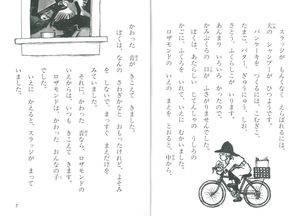 スラッジが しんくなく、えらばれるには、
犬の シャンプーが ひつようです。
パンケーキを つくるには、こむぎこ、
たまご、バター、ぎゅうにゅう、しお、
さとう、ふくらしこが いります。
あんまり いろいろ かったので、
かみぶくろの 口が ふさがりませんでした。
ぼくは、あたらしい じてんしゃの うしろの
かごに、ふくろを いれて、いえに むかいました。
ロザモンドの いえの、まえを とおると、中から、
かわった 音が きこえて きました。
ぼくは、なんの さわぎかなと おもったけれど、よそみ
を しないで、まっすぐ まえだけを
みていました。
それに、かわった 音なら、ロザモンドの
いえからは、いつも きこえて きます。
ロザモンドは、かわった おんなの子
なのです。
いえに かえると、スラッジが まって
いました。
7